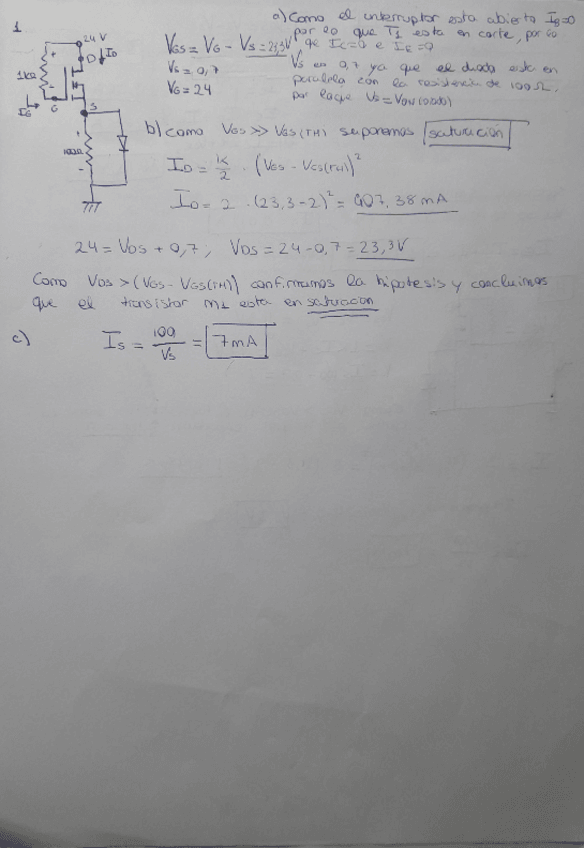 1
a) Como el interruptor esta abierto IB=0
por lo que T1 esta en corte, por lo
que IC=0 e IE=0
24 V
D
ID
1kΩ
+
-
IG
G
S
+
100Ω
-
VGS = VG - VS = 23,3V
VS = 0,7
VG = 24
VS es 0,7 ya que el diodo esta en
paralelo con la resistencia de 100Ω.
por lo que
b) Como VGS >> VGS(TH) suponemos saturación
ID = K/2 · (VGS - VGS(TH))²
ID = 2 · (23,3-2)² = 907,38 mA
24 = VDS + 0,7 ; VDS = 24-0,7 = 23,3V
Como VDS > (VGS - VGS(TH)) confirmamos la hipotesis y concluimos
que el transistor M1 esta en saturacion
c) IS = 100/VS = 7mA